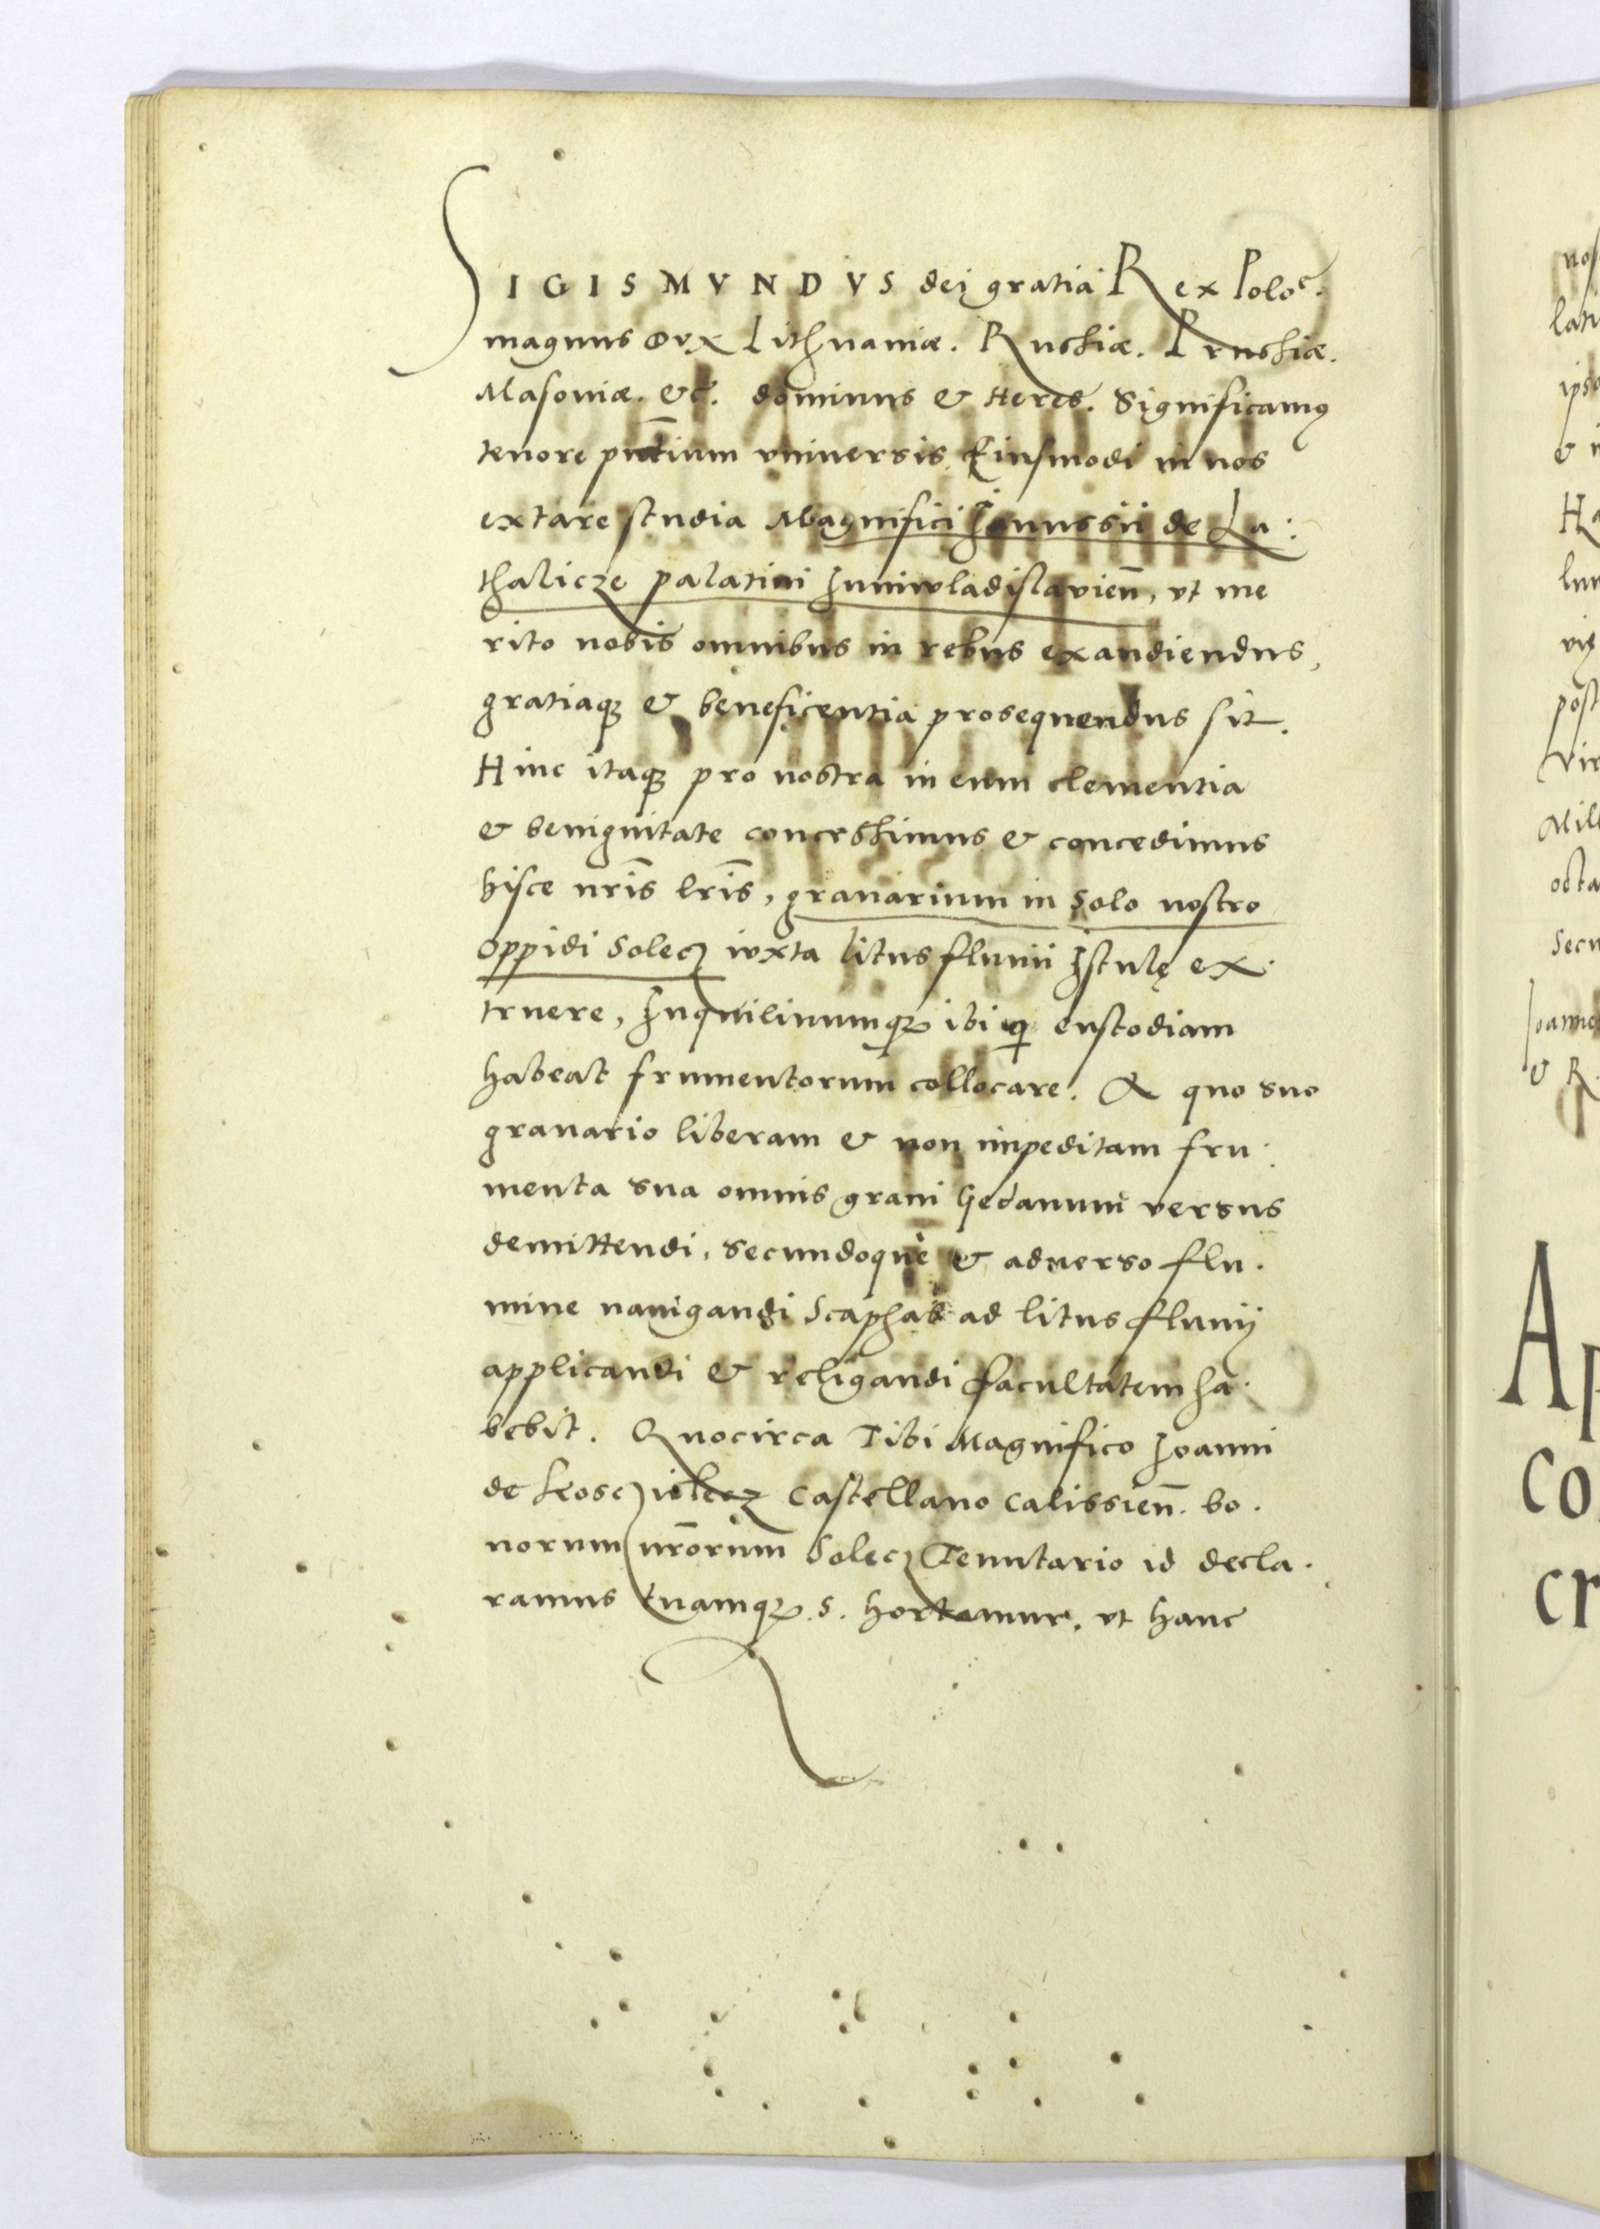 SIGISMVNDVS dei gratia Rex Poloē.
magnus Dux Lithuaniæ. Russiæ. Prussiæ.
Masoviæ. &c̄. dominus & Heres. Significamꝰ
tenore pn̄tium vniuersis. Eiusmodi in nos
extare studia Magnifici Janussii de La:
thalicze palatini Juniwladislauien̄, vt me
rito nobis omnibus in rebus exaudiendus,
gratiaqȝ & beneficentia prosequendus sit.
Hinc itaqȝ pro nostra in eum clementia
& benignitate concessimus & concedimus
hisce nr̄is lr̄is, granarium in solo nostro
oppidi Solecz iuxta litus fluuii Istulę ex.
truere, Inquilinumqȝ ibi qi custodiam
habeat frumentorum collocare. A quo suo
granario liberam & non impeditam fru.
menta sua omnis grani Gedanum versus
demittendi, secundoque & aduerso flu.
mine nauigandi scaphas ad litus fluuij
applicandi & religandi facultatem ha.
bebit. Quocirca Tibi Magnifico Joanni
de Kosczielecz Castellano Calissien̄. bo.
norum nr̄orum Solecz Tenutario id decla.
ramus tuamqȝ. S. hortamur, vt hanc